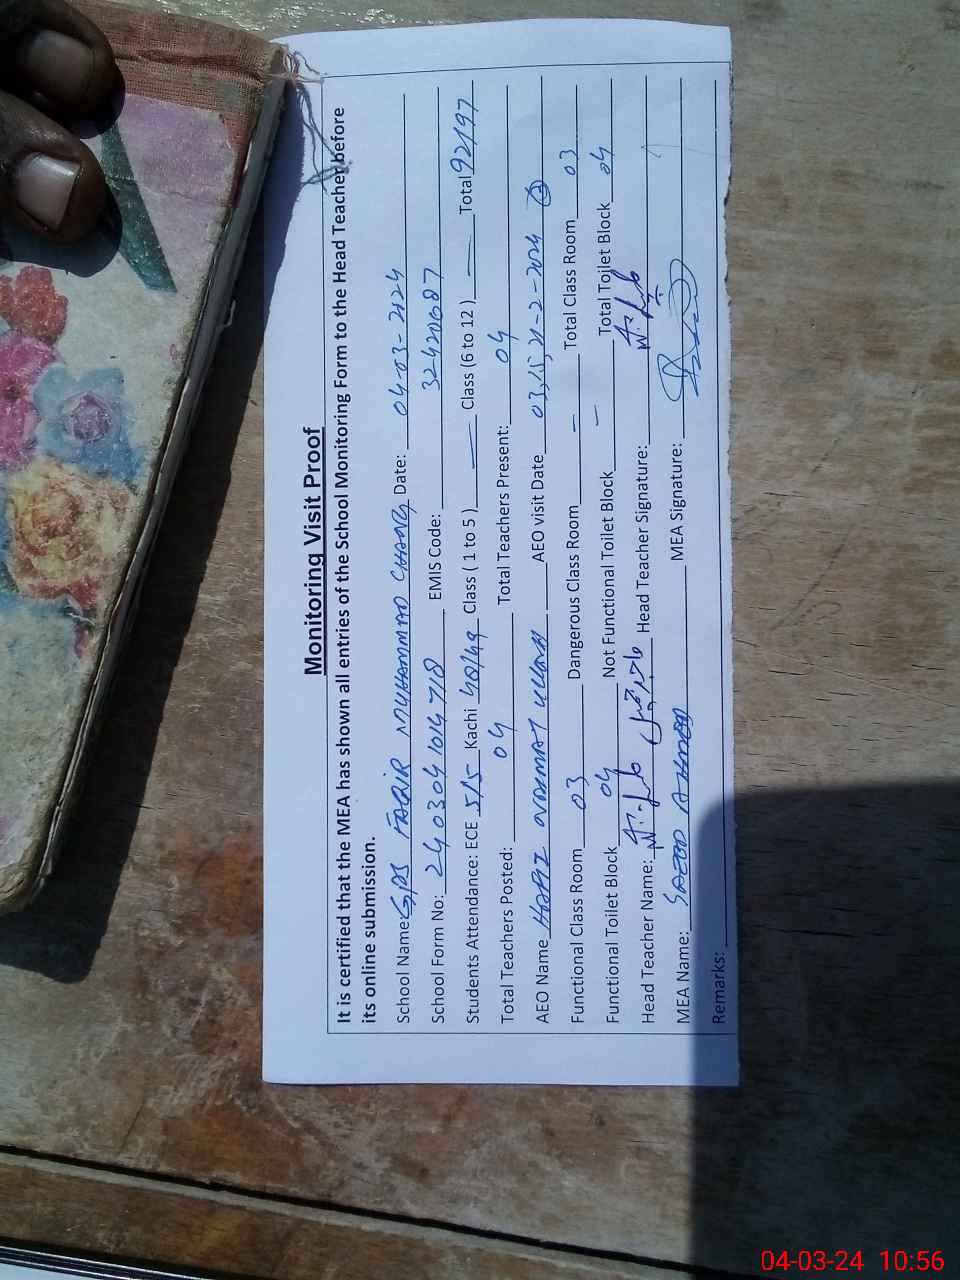 Monitoring Visit Proof
It is certified that the MEA has shown all entries of the School Monitoring Form to the Head Teacher before
its online submission.
School Name GPS FAQIR MUHAMMAD CHANG Date: 04-03-2024
School Form No: 24030410 4718 EMIS Code: 32420687
Students Attendance: ECE 5/5 Kachi 48/49 Class ( 1 to 5 ) — Class (6 to 12 ) — Total 92/97
Total Teachers Posted: 04 Total Teachers Present: 04
AEO Name HAFIZ ULLAH AEO visit Date 03,15,21-2-2024 3
Functional Class Room 03 Dangerous Class Room — Total Class Room 03
Functional Toilet Block 04 Not Functional Toilet Block — Total Toilet Block 04
Head Teacher Name: Head Teacher Signature:
MEA Name: SAEED AHMED MEA Signature:
Remarks:
04-03-24 10:56